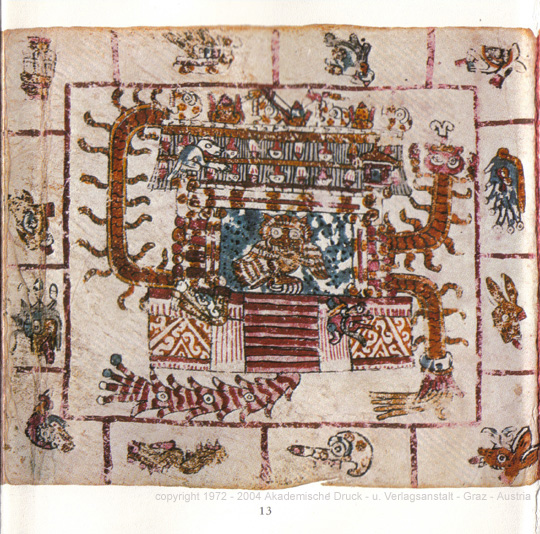 copyright 1972 - 2004 Akademische Druck - u. Verlagsanstalt - Graz - Austria
13